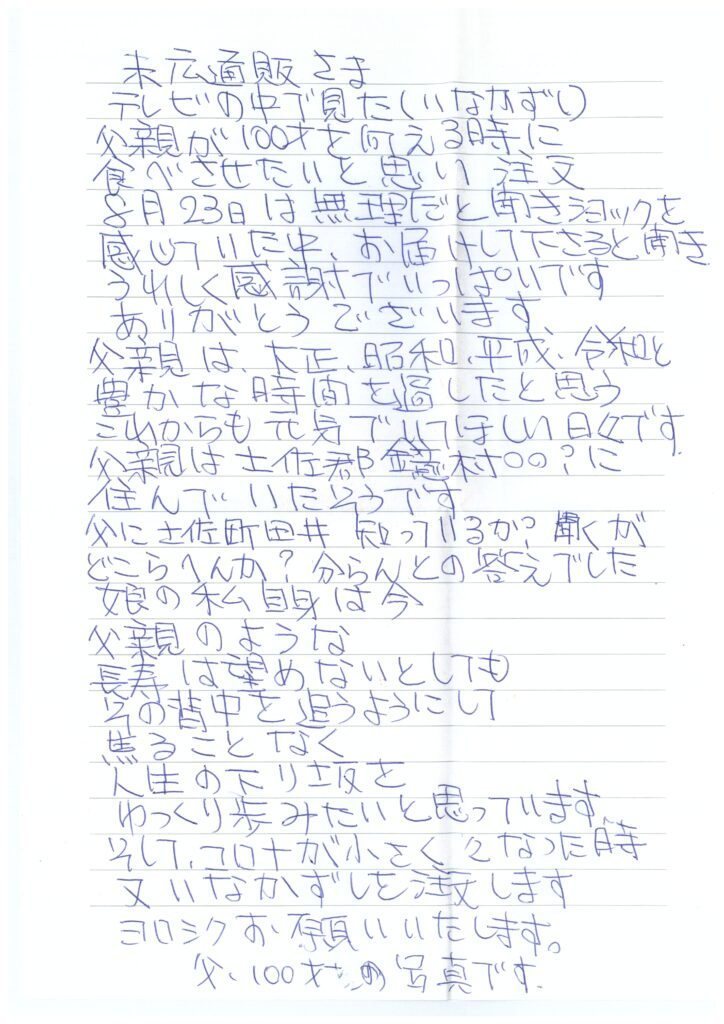 末広通販さま
テレビの中で見た(いなかずし)
父親が100才を向える時に
食べさせたいと思い 注文
8月23日は無理だと聞きショックを
感じていた中、お届けして下さると聞き
うれしく感謝でいっぱいです
ありがとうございます
父親は、大正、昭和、平成、令和と
豊かな時間を過したと思う
これからも元気でいてほしい日々です
父親は土佐郡鏡村〇〇?に
住んでいたそうです
父に土佐町田井 知っているか?聞くが
どこらへんか?分らんとの答えでした
娘の私自身は今
父親のような
長寿は望めないとしても
その背中を追うようにして
焦ることなく
人生の下り坂を
ゆっくり歩みたいと思っています、
そして、コロナが小さくなった時
又いなかずしを注文します
ヨロシクお願いいたします。
父、100才の写真です.